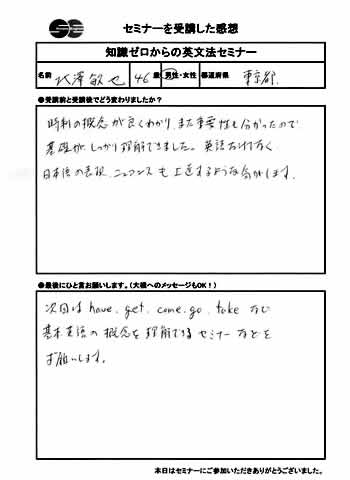 セミナーを受講した感想
知識ゼロからの英文法セミナー
名前 北澤 敏也 46 歳 男性・女性 都道府県 東京都
●受講前と受講後でどう変わりましたか？
時制の概念が良くわかり、また重要性も分かったので
基礎がしっかり理解できました。英語だけでなく
日本語の表現、ニュアンスも上達するような気がします。
●最後にひと言お願いします。（大橋へのメッセージもOK！）
次回は have, get, come, go, take など
基本英語の概念を理解できるセミナーなどを
お願いします。
本日はセミナーにご参加いただきありがとうございました。